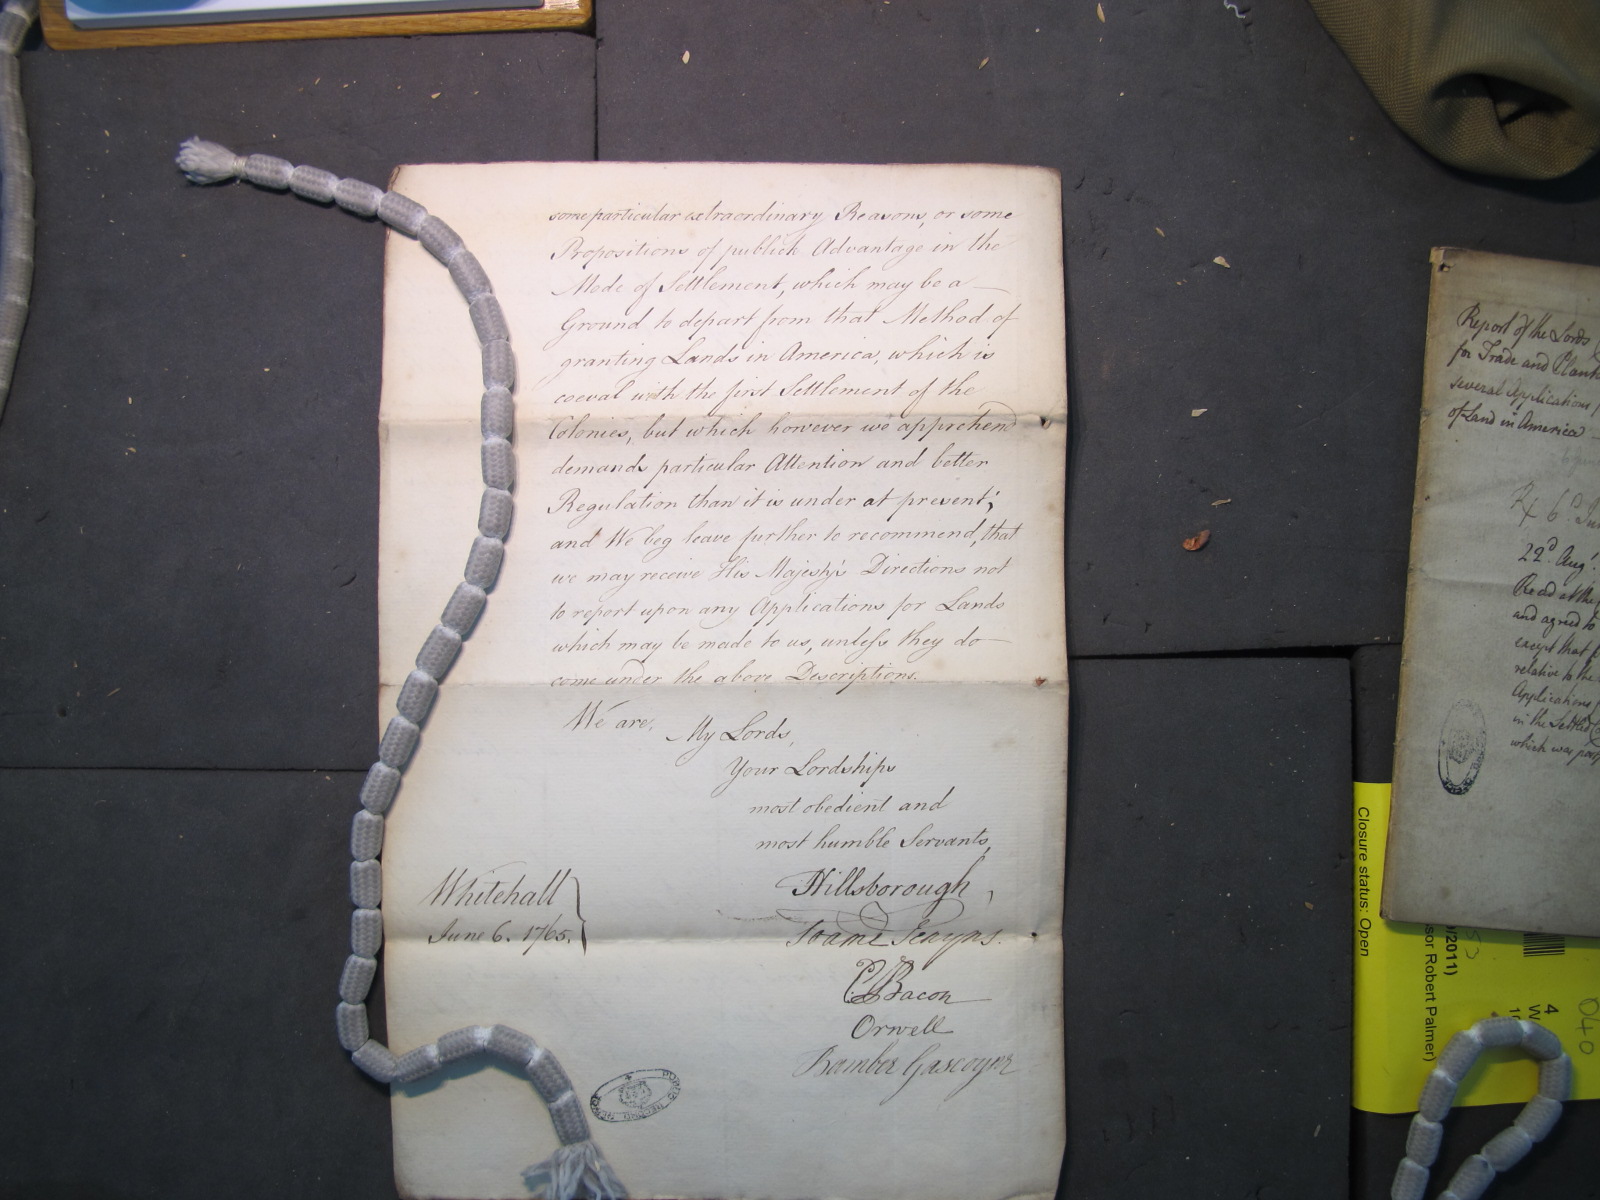 some particular extraordinary Reasons, or some
Propositions of publick Advantage in the
Mode of Settlement, which may be a
Ground to depart from that Method of
granting Lands in America, which is
coeval with the first Settlement of the
Colonies, but which however we apprehend
demands particular Attention and better
Regulation than it is under at present;
and We beg leave further to recommend, that
we may receive His Majesty's Directions not
to report upon any Applications for Lands
which may be made to us, unless they do
come under the above Descriptions.
We are,
My Lords,
Your Lordships
most obedient and
most humble Servants,
Whitehall
June 6. 1765.
Hillsborough,
Soame Jenyns.
Bacon
Orwell
Bamber Gascoyne
PUBLIC RECORD OFFICE
Report of the Lords
for Trade and Plant
several Applications
of Land in America
Rx 6th Jun
22d Augt.
Read at the
and agreed to
except that
relative to the
Applications
in the Settle
which was post
Closure status: Open
/2011)
sor Robert Palmer)
53
4
W
040